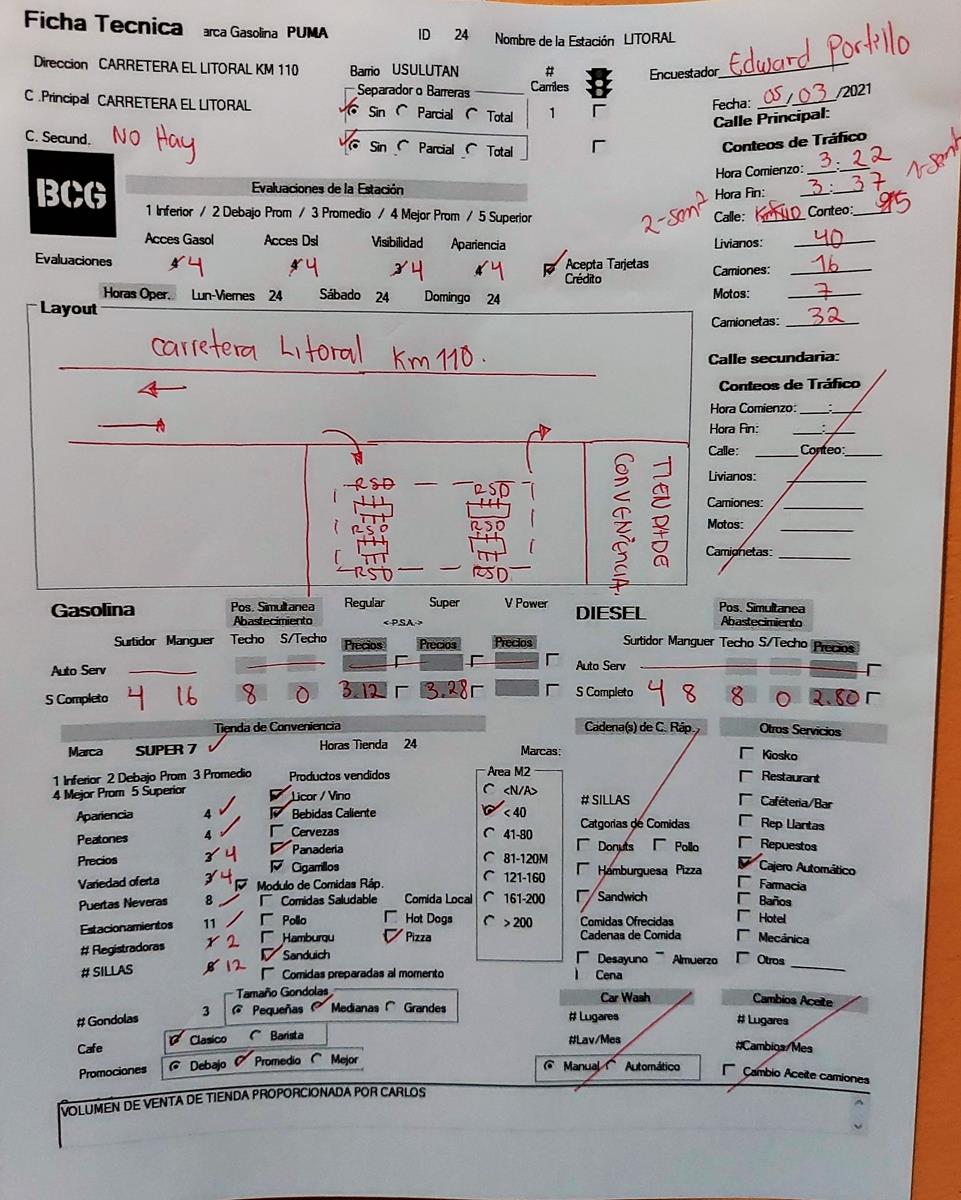 Ficha Tecnica arca Gasolina PUMA ID 24 Nombre de la Estación LITORAL
Encuestador Edward Portillo
Direccion CARRETERA EL LITORAL KM 110 Barrio USULUTAN # Carriles
Separador o Barreras
Fecha: 05/03/2021
C .Principal CARRETERA EL LITORAL Sin Parcial Total 1
Calle Principal:
C. Secund. No Hay Sin Parcial Total
Conteos de Tráfico
BCG
Hora Comienzo: 3:22
Evaluaciones de la Estación
Hora Fin: 3:37
1 Inferior / 2 Debajo Prom / 3 Promedio / 4 Mejor Prom / 5 Superior
Calle: Conteo: 95
Acces Gasol Acces Dsl Visibilidad Apariencia
Livianos: 40
Evaluaciones 4 4 3 4 4 Acepta Tarjetas Crédito
Camiones: 16
Horas Oper. Lun-Viernes 24 Sábado 24 Domingo 24
Motos: 7
Camionetas: 32
Layout
carretera Litoral Km 110.
Calle secundaria:
Conteos de Tráfico
Hora Comienzo: __:__
Hora Fin: __:__
Calle: Conteo:
Livianos:
Camiones:
Motos:
Camionetas:
RSD RSD
RSD RSD
RSD RSD
TIENDA DE
CONVENIENCIA.
Gasolina Pos. Simultanea Abastecimiento Regular Super V Power
<-P.S.A.->
Surtidor Manguer Techo S/Techo Precios Precios Precios
Auto Serv
S Completo 4 16 8 0 3.12 3.28
DIESEL Pos. Simultanea Abastecimiento
Surtidor Manguer Techo S/Techo Precios
Auto Serv
S Completo 4 8 8 0 2.80
Tienda de Conveniencia
Marca SUPER 7 Horas Tienda 24
1 Inferior 2 Debajo Prom 3 Promedio
4 Mejor Prom 5 Superior
Apariencia 4
Peatones 4
Precios 3 4
Variedad oferta 3 4
Puertas Neveras 8
Estacionamientos 11
# Registradoras 2
# SILLAS 12
Productos vendidos
Licor / Vino
Bebidas Caliente
Cervezas
Panaderia
Cigarrillos
Modulo de Comidas Ráp.
Comidas Saludable Comida Local
Pollo Hot Dogs
Hamburgu Pizza
Sanduich
Comidas preparadas al momento
Marcas:
Area M2
<N/A>
< 40
41-80
81-120M
121-160
161-200
> 200
# Gondolas 3
Tamaño Gondolas
Pequeñas Medianas Grandes
Cafe Clasico Barista
Promociones Debajo Promedio Mejor
Cadena(s) de C. Ráp.
# SILLAS
Catgorias de Comidas
Donuts Pollo
Hamburguesa Pizza
Sandwich
Comidas Ofrecidas
Cadenas de Comida
Desayuno Almuerzo
Cena
Otros Servicios
Kiosko
Restaurant
Caféteria/Bar
Rep Llantas
Repuestos
Cajero Automático
Farmacia
Baños
Hotel
Mecánica
Otros
Car Wash
# Lugares
#Lav/Mes
Manual Automático
Cambios Aceite
# Lugares
#Cambios/Mes
Cambio Aceite camiones
VOLUMEN DE VENTA DE TIENDA PROPORCIONADA POR CARLOS